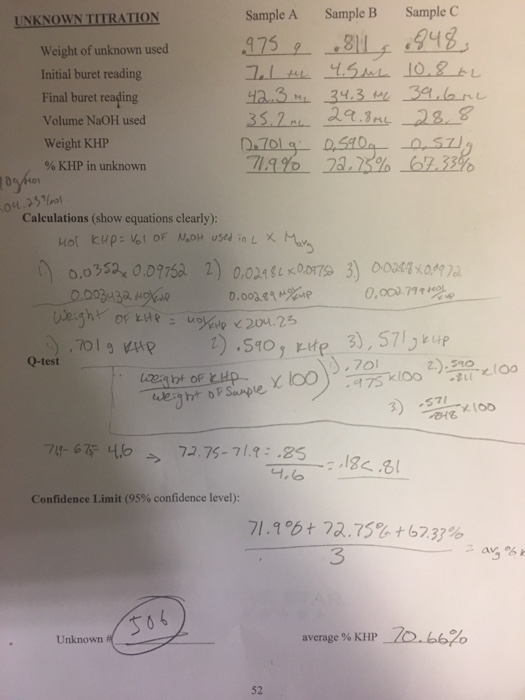 UNKNOWN TITRATION Sample A Sample B Sample C
Weight of unknown used .975 g .811 g .848 g
Initial buret reading 7.1 mL 4.5 mL 10.8 mL
Final buret reading 42.3 mL 34.3 mL 39.6 mL
Volume NaOH used 35.2 mL 29.8 mL 28.8
Weight KHP 0.701 g 0.590 g 0.571 g
% KHP in unknown 71.9% 72.75% 67.33%
Calculations (show equations clearly):
Mol KHP = Vol OF NaOH used in L x Mavg
1) 0.0352 x 0.09752 2) 0.0298 L x 0.09752 3) 0.0288 x
0.003432 mol KHP 0.00289 mol KHP 0.002799 mol KHP
Weight OF KHP = mol KHP x 204.23
1) .701 g KHP 2) .590 g KHP 3) .571 g KHP
Q-test
Weight OF KHP / Weight OF Sample x 100) 1) .701 / .975 x 100 2) .590 / .811 x 100
3) .571 / .848 x 100
4.6 → 72.75 - 71.9 = .85 / 4.6 = .18 < .81
Confidence Limit (95% confidence level):
71.9% + 72.75% + 67.33% / 3 = avg %
Unknown # 506 average % KHP 70.66%
52